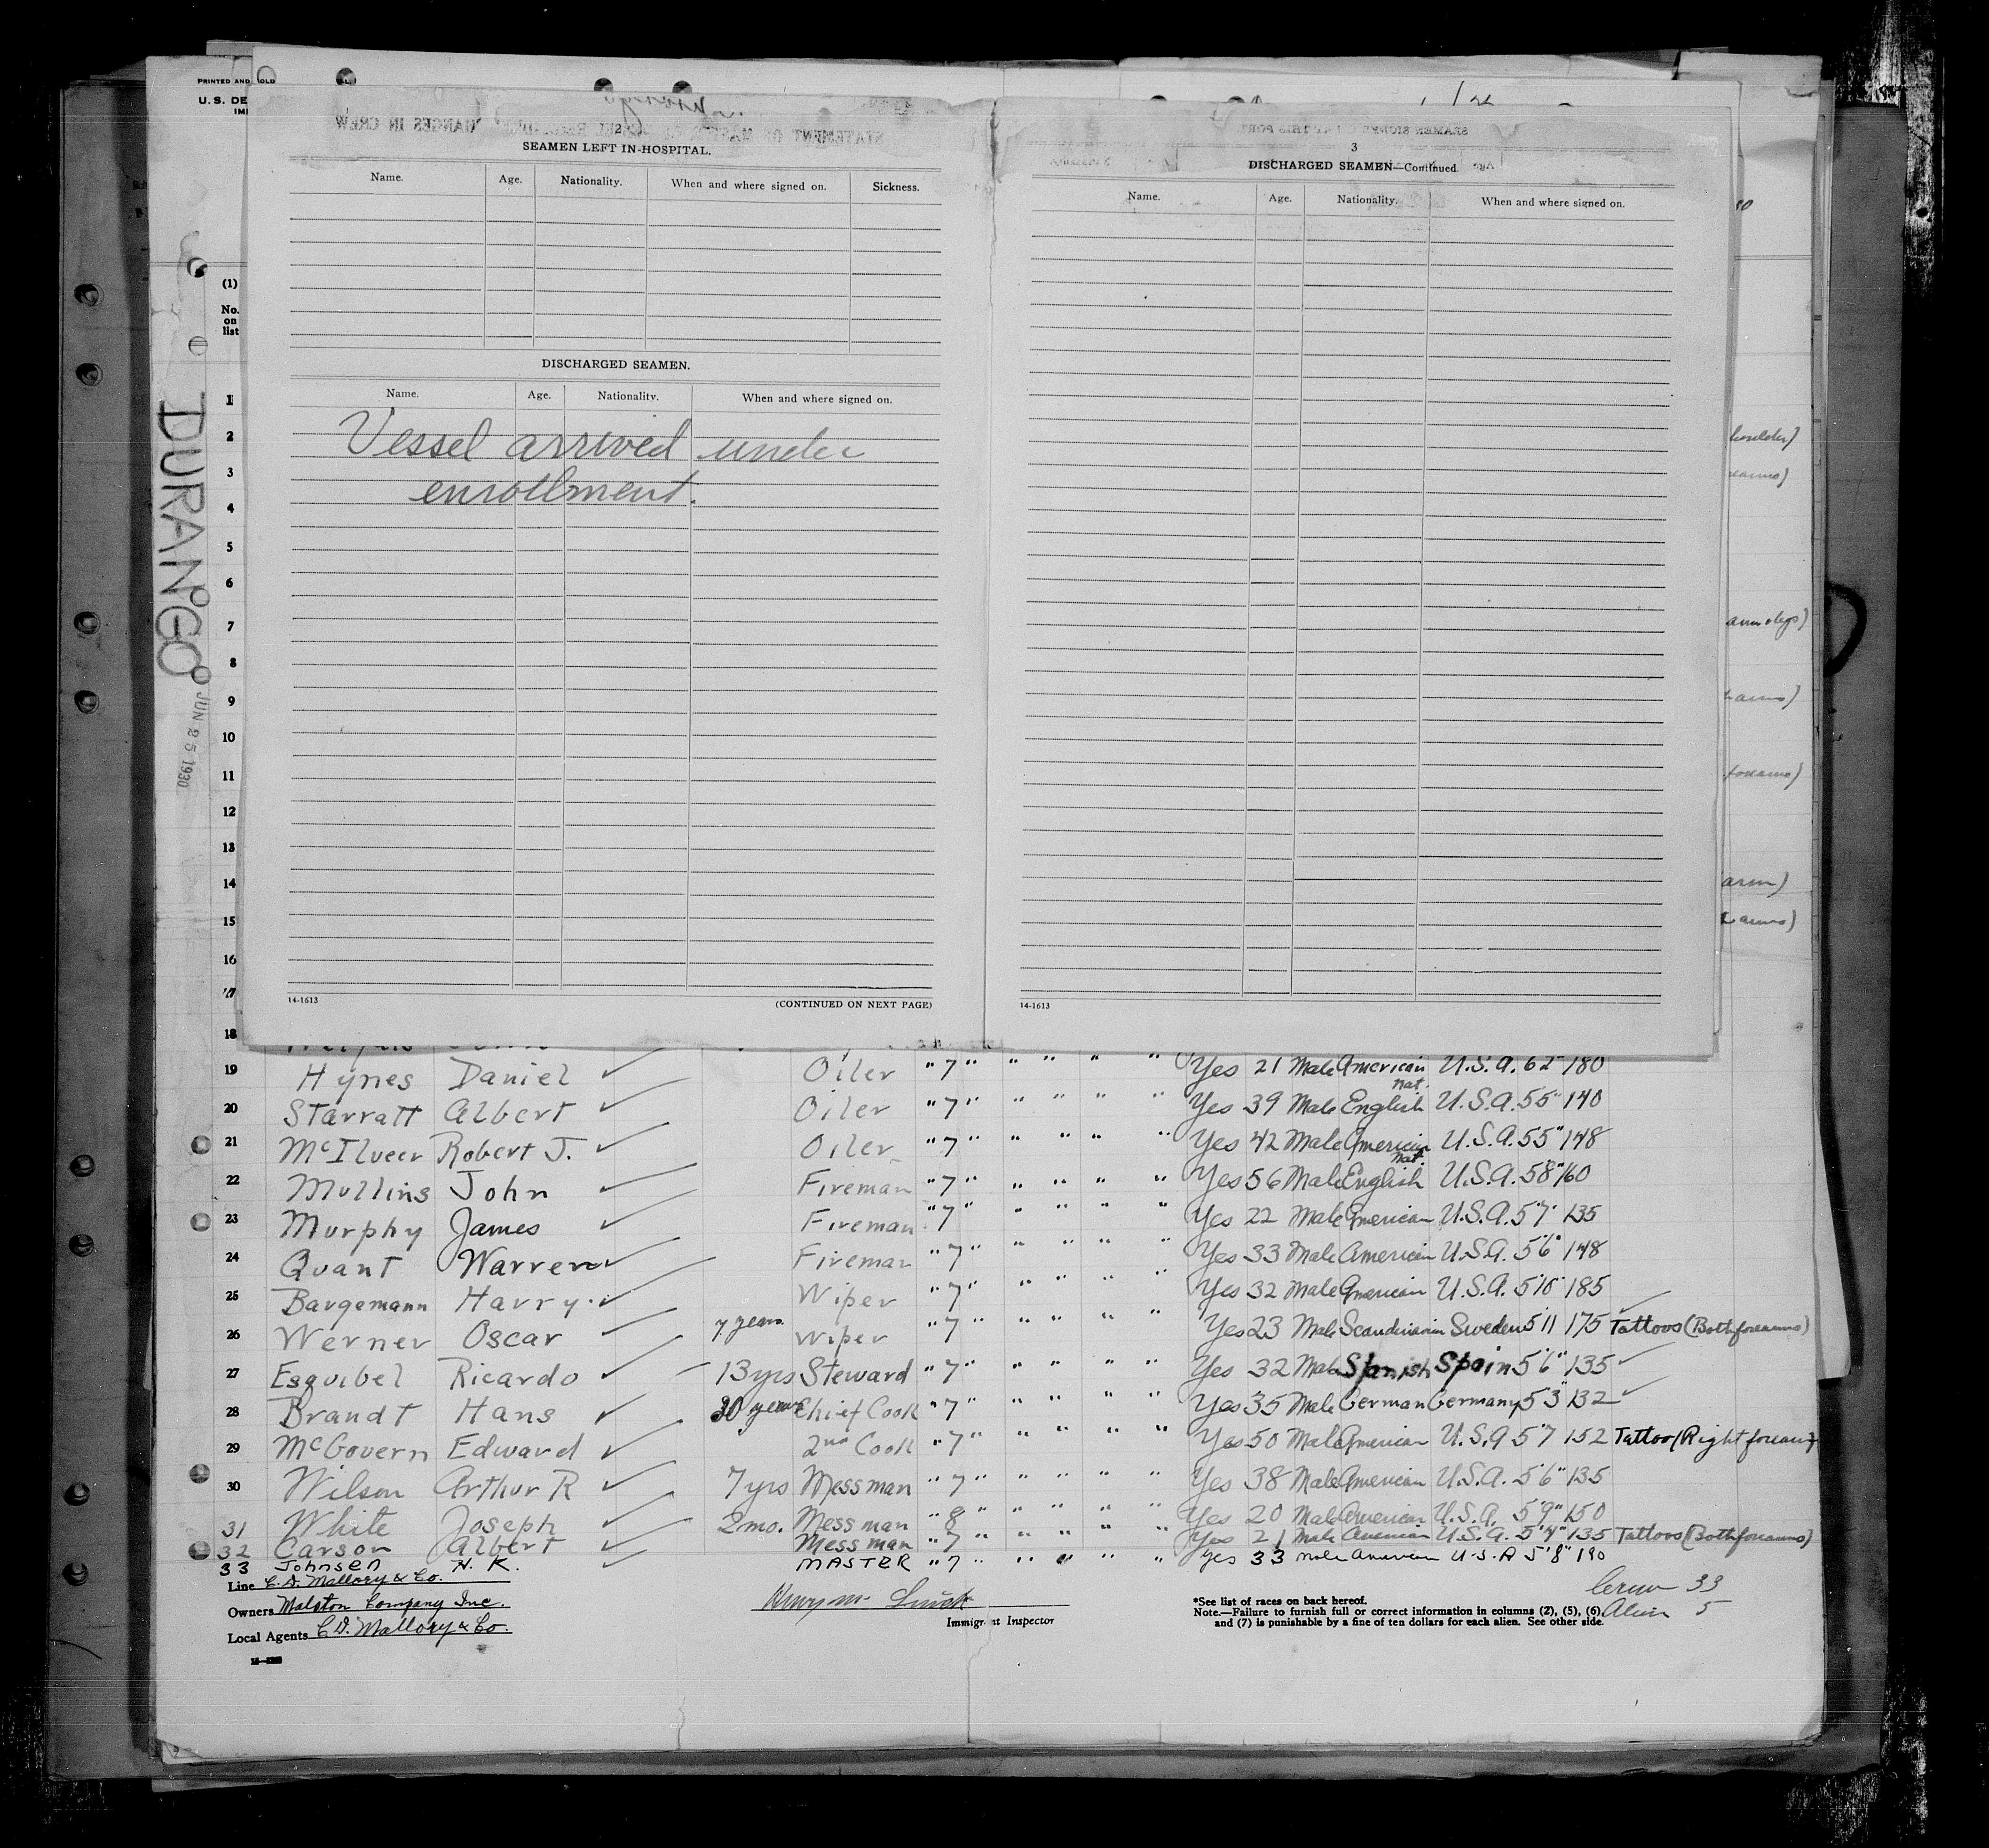 PRINTED AND
U. S. DE
(1)
No.
on
list
DURANGO
JUN 25 1930
SEAMEN LEFT IN HOSPITAL.
Name. Age. Nationality. When and where signed on. Sickness.
DISCHARGED SEAMEN.
Name. Age. Nationality. When and where signed on.
Vessel arrived under
enrollment.
14-1613 (CONTINUED ON NEXT PAGE)
3
DISCHARGED SEAMEN—Continued
Name. Age. Nationality. When and where signed on.
14-1613
1
2
3
4
5
6
7
8
9
10
11
12
13
14
15
16
17
18
19 Hynes Daniel Oiler " 7 " " " " " Yes 21 Male American U.S.A. 6 2" 180
20 Starratt Albert Oiler " 7 " " " " " Yes 39 Male nat. English U.S.A. 5 5" 140
21 McIlveer Robert J. Oiler " 7 " " " " " Yes 42 Male American U.S.A. 5 5" 148
22 Mullins John Fireman " 7 " " " " " Yes 56 Male nat. English U.S.A. 5 8" 160
23 Murphy James Fireman " 7 " " " " " Yes 22 Male American U.S.A. 5'7" 135
24 Quant Warren Fireman " 7 " " " " " Yes 33 Male American U.S.A. 5'6" 148
25 Bargemann Harry. Wiper " 7 " " " " " Yes 32 Male American U.S.A. 5'10" 185
26 Werner Oscar 7 years Wiper " 7 " " " " " Yes 23 Male Scandinavian Sweden 5'11 175 Tattoos (Both forearms)
27 Esquibel Ricardo 13 yrs Steward " 7 " " " " " Yes 32 Male Spanish Spain 5'6" 135
28 Brandt Hans 30 years Chief Cook " 7 " " " " " Yes 35 Male German Germany 5'3" 132
29 McGovern Edward 2nd Cook " 7 " " " " " Yes 50 Male American U.S.A 5'7 152 Tattoo (Right forearm)
30 Wilson Arthur R 7 yrs Messman " 7 " " " " " Yes 38 Male American U.S.A. 5'6" 135
31 White Joseph 2 mo. Messman " 8 " " " " " Yes 20 Male American U.S.A. 5'9" 150
32 Carson Albert Messman " 7 " " " " " Yes 21 Male American U.S.A. 5'4" 135 Tattoos (Both forearms)
33 Johnsen H. K. MASTER " 7 " " " " " Yes 33 male American U.S.A 5'8" 190
Line C. D. Mallory & Co.
Owners Malston Company Inc.
Local Agents C.D. Mallory & Co.
Immigrant Inspector
*See list of races on back hereof.
Note.—Failure to furnish full or correct information in columns (2), (5), (6)
and (7) is punishable by a fine of ten dollars for each alien. See other side.
33
Alien 5